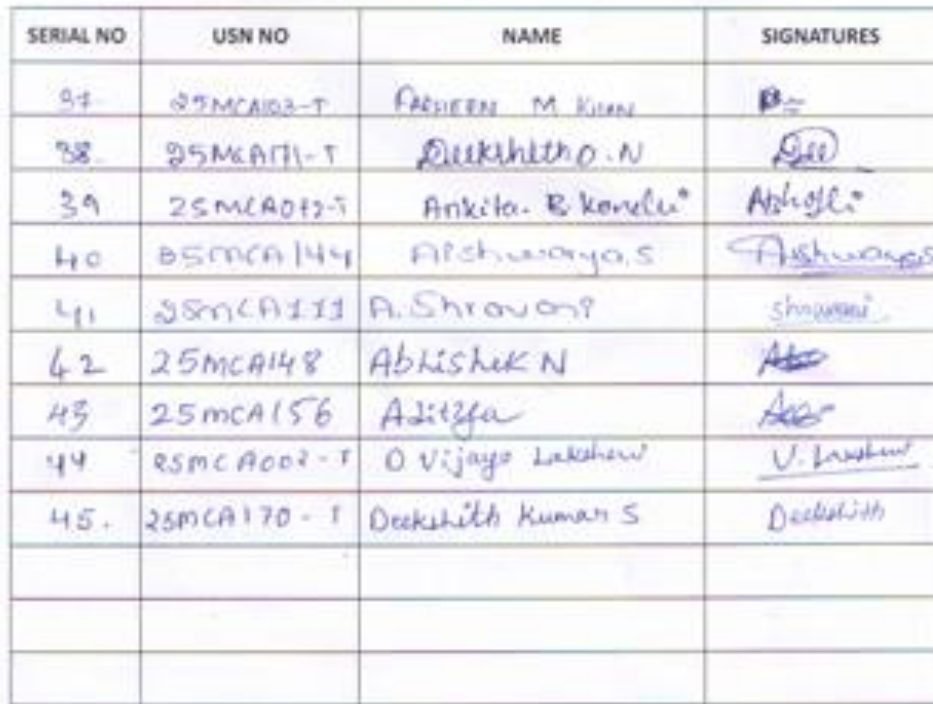 SERIAL NO USN NO NAME SIGNATURES
37. 25MCA103-T FARHEEN M KHAN
38. 25MCA171-T Deekshith O.N Dee
39 25MCA042-T Ankita. B
40 25MCA144 Aishwarya.S Aishwarya.S
41 25MCA111 A.Shravani shravani
42 25MCA148 Abhishek N
43 25MCA156 Aditya
44 25MCA002-T O Vijaya Lakshmi V. Lakshmi
45. 25MCA170-T Deekshith Kumar S Deekshith